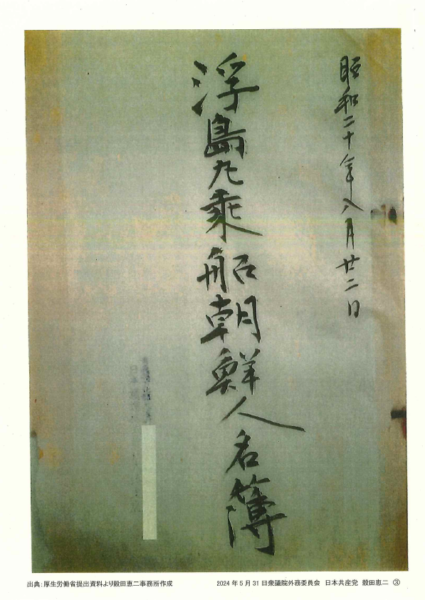 昭和二十年八月廿二日
浮島丸乗船朝鮮人名簿
出典：厚生労働省提出資料より穀田恵二事務所作成
2024年5月31日衆議院外務委員会　日本共産党　穀田恵二　③